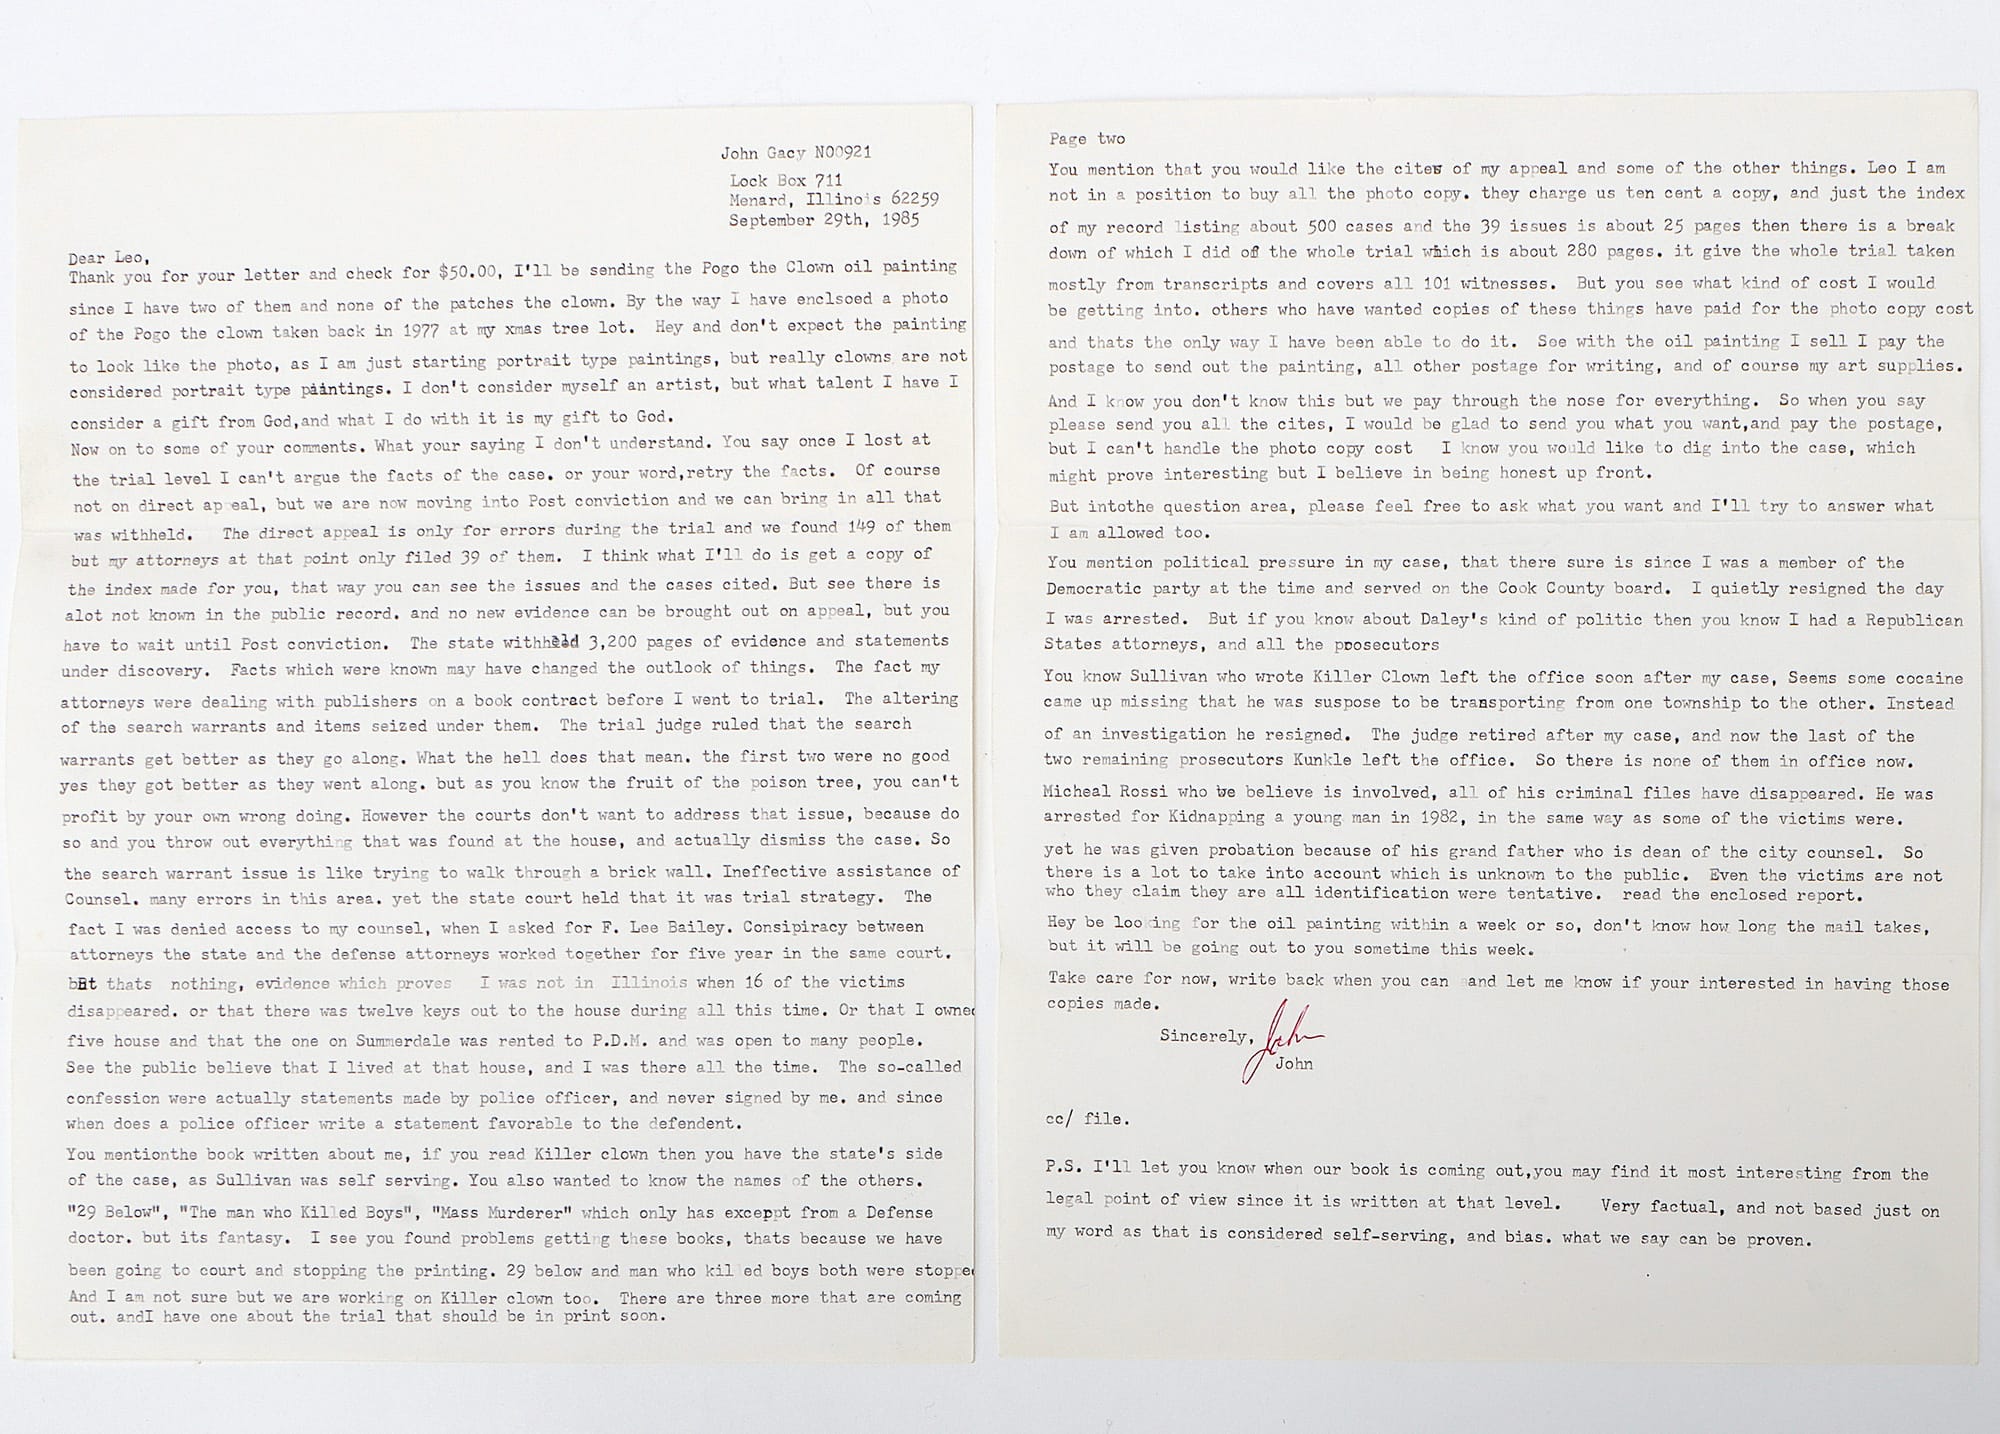 John Gacy N00921
Lock Box 711
Menard, Illinois 62259
September 29th, 1985
Dear Leo,
Thank you for your letter and check for $50.00, I'll be sending the Pogo the Clown oil painting
since I have two of them and none of the patches the clown. By the way I have enclsoed a photo
of the Pogo the clown taken back in 1977 at my xmas tree lot. Hey and don't expect the painting
to look like the photo, as I am just starting portrait type paintings, but really clowns are not
considered portrait type paintings. I don't consider myself an artist, but what talent I have I
consider a gift from God,and what I do with it is my gift to God.
Now on to some of your comments. What your saying I don't understand. You say once I lost at
the trial level I can't argue the facts of the case. or your word,retry the facts. Of course
not on direct appeal, but we are now moving into Post conviction and we can bring in all that
was withheld. The direct appeal is only for errors during the trial and we found 149 of them
but my attorneys at that point only filed 39 of them. I think what I'll do is get a copy of
the index made for you, that way you can see the issues and the cases cited. But see there is
alot not known in the public record. and no new evidence can be brought out on appeal, but you
have to wait until Post conviction. The state withheld 3,200 pages of evidence and statements
under discovery. Facts which were known may have changed the outlook of things. The fact my
attorneys were dealing with publishers on a book contract before I went to trial. The altering
of the search warrants and items seized under them. The trial judge ruled that the search
warrants get better as they go along. What the hell does that mean. the first two were no good
yes they got better as they went along. but as you know the fruit of the poison tree, you can't
profit by your own wrong doing. However the courts don't want to address that issue, because do
so and you throw out everything that was found at the house, and actually dismiss the case. So
the search warrant issue is like trying to walk through a brick wall. Ineffective assistance of
Counsel. many errors in this area. yet the state court held that it was trial strategy. The
fact I was denied access to my counsel, when I asked for F. Lee Bailey. Consipiracy between
attorneys the state and the defense attorneys worked together for five year in the same court.
but thats nothing, evidence which proves I was not in Illinois when 16 of the victims
disappeared. or that there was twelve keys out to the house during all this time. Or that I owned
five house and that the one on Summerdale was rented to P.D.M. and was open to many people.
See the public believe that I lived at that house, and I was there all the time. The so-called
confession were actually statements made by police officer, and never signed by me. and since
when does a police officer write a statement favorable to the defendent.
You mentionthe book written about me, if you read Killer clown then you have the state's side
of the case, as Sullivan was self serving. You also wanted to know the names of the others.
"29 Below", "The man who Killed Boys", "Mass Murderer" which only has exceppt from a Defense
doctor. but its fantasy. I see you found problems getting these books, thats because we have
been going to court and stopping the printing. 29 below and man who killed boys both were stopped
And I am not sure but we are working on Killer clown too. There are three more that are coming
out. andI have one about the trial that should be in print soon.
Page two
You mention that you would like the cites of my appeal and some of the other things. Leo I am
not in a position to buy all the photo copy. they charge us ten cent a copy, and just the index
of my record listing about 500 cases and the 39 issues is about 25 pages then there is a break
down of which I did of the whole trial which is about 280 pages. it give the whole trial taken
mostly from transcripts and covers all 101 witnesses. But you see what kind of cost I would
be getting into. others who have wanted copies of these things have paid for the photo copy cost
and thats the only way I have been able to do it. See with the oil painting I sell I pay the
postage to send out the painting, all other postage for writing, and of course my art supplies.
And I know you don't know this but we pay through the nose for everything. So when you say
please send you all the cites, I would be glad to send you what you want,and pay the postage,
but I can't handle the photo copy cost I know you would like to dig into the case, which
might prove interesting but I believe in being honest up front.
But intothe question area, please feel free to ask what you want and I'll try to answer what
I am allowed too.
You mention political pressure in my case, that there sure is since I was a member of the
Democratic party at the time and served on the Cook County board. I quietly resigned the day
I was arrested. But if you know about Daley's kind of politic then you know I had a Republican
States attorneys, and all the prosecutors
You know Sullivan who wrote Killer Clown left the office soon after my case, Seems some cocaine
came up missing that he was suspose to be transporting from one township to the other. Instead
of an investigation he resigned. The judge retired after my case, and now the last of the
two remaining prosecutors Kunkle left the office. So there is none of them in office now.
Micheal Rossi who we believe is involved, all of his criminal files have disappeared. He was
arrested for Kidnapping a young man in 1982, in the same way as some of the victims were.
yet he was given probation because of his grand father who is dean of the city counsel. So
there is a lot to take into account which is unknown to the public. Even the victims are not
who they claim they are all identification were tentative. read the enclosed report.
Hey be looking for the oil painting within a week or so, don't know how long the mail takes,
but it will be going out to you sometime this week.
Take care for now, write back when you can and let me know if your interested in having those
copies made.
Sincerely, John
John
cc/ file.
P.S. I'll let you know when our book is coming out,you may find it most interesting from the
legal point of view since it is written at that level. Very factual, and not based just on
my word as that is considered self-serving, and bias. what we say can be proven.